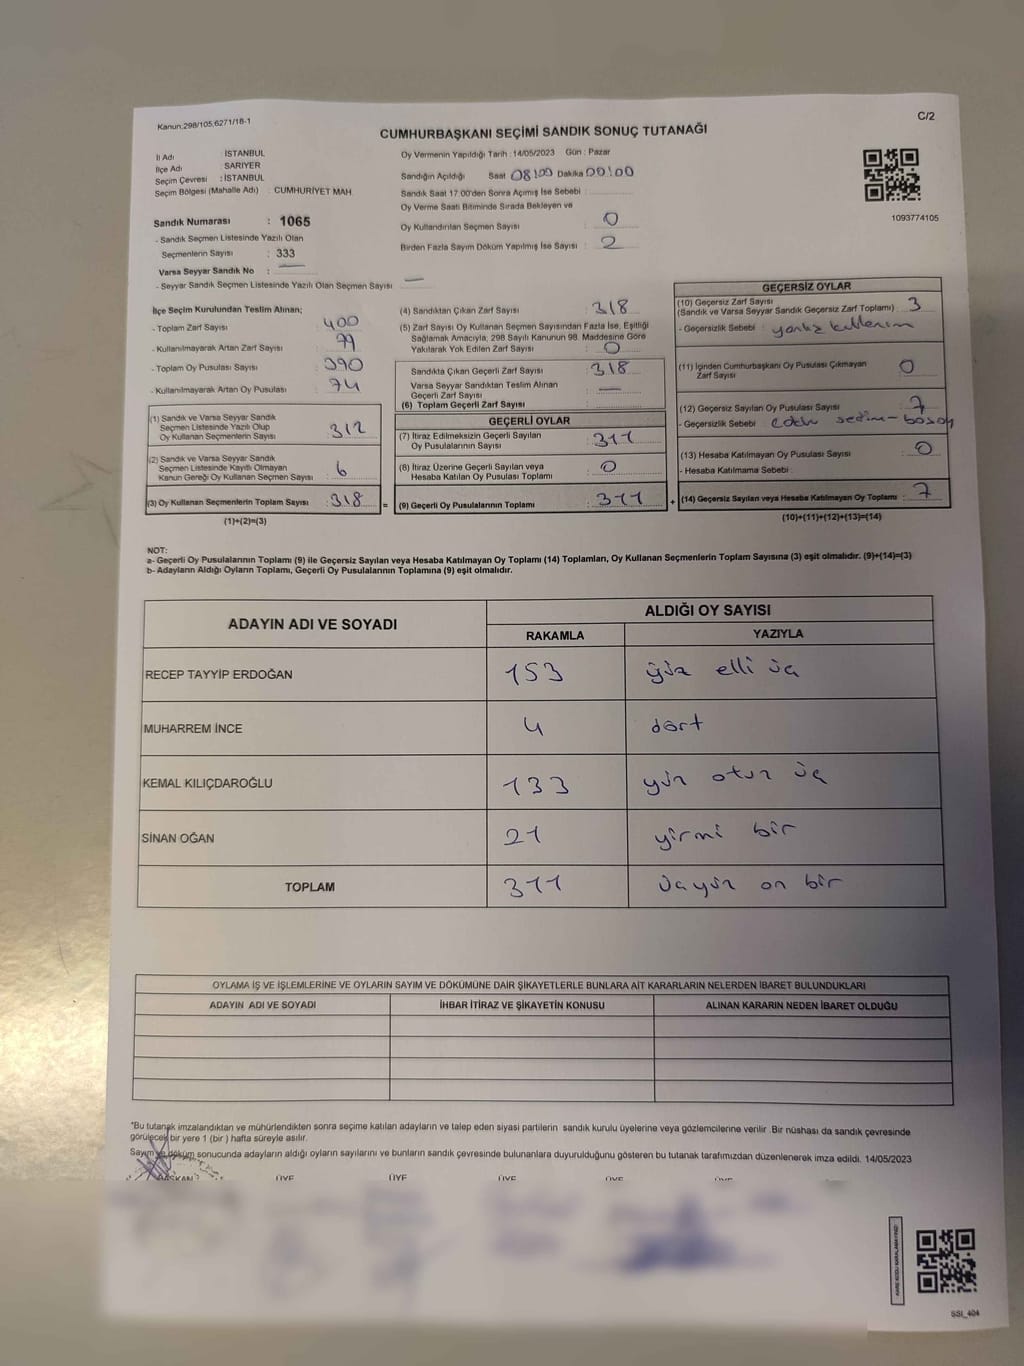 Kanun:298/105,6271/18-1
C/2
CUMHURBAŞKANI SEÇİMİ SANDIK SONUÇ TUTANAĞI
İl Adı : İSTANBUL
İlçe Adı : SARIYER
Seçim Çevresi : İSTANBUL
Seçim Bölgesi (Mahalle Adı) : CUMHURİYET MAH
Sandık Numarası : 1065
- Sandık Seçmen Listesinde Yazılı Olan
Seçmenlerin Sayısı : 333
Varsa Seyyar Sandık No :
- Seyyar Sandık Seçmen Listesinde Yazılı Olan Seçmen Sayısı
Oy Vermenin Yapıldığı Tarih : 14/05/2023 Gün : Pazar
Sandığın Açıldığı Saat 08:00 Dakika 00:00
Sandık Saat 17:00'den Sonra Açımış İse Sebebi :
Oy Verme Saati Bitiminde Sırada Bekleyen ve
Oy Kullandırılan Seçmen Sayısı : 0
Birden Fazla Sayım Döküm Yapılmış İse Sayısı : 2
1093774105
İlçe Seçim Kurulundan Teslim Alınan;
- Toplam Zarf Sayısı : 400
- Kullanılmayarak Artan Zarf Sayısı :
- Toplam Oy Pusulası Sayısı : 390
- Kullanılmayarak Artan Oy Pusulası : 74
(1) Sandık ve Varsa Seyyar Sandık
Seçmen Listesinde Yazılı Olup
Oy Kullanan Seçmenlerin Sayısı : 312
(2) Sandık ve Varsa Seyyar Sandık
Seçmen Listesinde Kayıtlı Olmayan
Kanun Gereği Oy Kullanan Seçmen Sayısı : 6
(3) Oy Kullanan Seçmenlerin Toplam Sayısı : 318 =
(1)+(2)=(3)
(4) Sandıktan Çıkan Zarf Sayısı : 318
(5) Zarf Sayısı Oy Kullanan Seçmen Sayısından Fazla İse, Eşitliği
Sağlamak Amacıyla, 298 Sayılı Kanunun 98. Maddesine Göre
Yakılarak Yok Edilen Zarf Sayısı : 0
Sandıkta Çıkan Geçerli Zarf Sayısı : 318
Varsa Seyyar Sandıktan Teslim Alınan
Geçerli Zarf Sayısı :
(6) Toplam Geçerli Zarf Sayısı :
GEÇERLİ OYLAR
(7) İtiraz Edilmeksizin Geçerli Sayılan
Oy Pusulalarının Sayısı : 311
(8) İtiraz Üzerine Geçerli Sayılan veya
Hesaba Katılan Oy Pusulası Toplamı : 0
(9) Geçerli Oy Pusulalarının Toplamı : 311 +
GEÇERSİZ OYLAR
(10) Geçersiz Zarf Sayısı
(Sandık ve Varsa Seyyar Sandık Geçersiz Zarf Toplamı) : 3
- Geçersizlik Sebebi :
(11) İçinden Cumhurbaşkanı Oy Pusulası Çıkmayan
Zarf Sayısı : 0
(12) Geçersiz Sayılan Oy Pusulası Sayısı : 7
- Geçersizlik Sebebi :
(13) Hesaba Katılmayan Oy Pusulası Sayısı : 0
- Hesaba Katılmama Sebebi :
(14) Geçersiz Sayılan veya Hesaba Katılmayan Oy Toplamı : 7
(10)+(11)+(12)+(13)=(14)
NOT:
a- Geçerli Oy Pusulalarının Toplamı (9) ile Geçersiz Sayılan veya Hesaba Katılmayan Oy Toplamı (14) Toplamları, Oy Kullanan Seçmenlerin Toplam Sayısına (3) eşit olmalıdır. (9)+(14)=(3)
b- Adayların Aldığı Oyların Toplamı, Geçerli Oy Pusulalarının Toplamına (9) eşit olmalıdır.
ADAYIN ADI VE SOYADI ALDIĞI OY SAYISI
RAKAMLA YAZIYLA
RECEP TAYYİP ERDOĞAN 153 yüz elli üç
MUHARREM İNCE 4 dört
KEMAL KILIÇDAROĞLU 133 yüz otuz üç
SİNAN OĞAN 21 yirmi bir
TOPLAM 311 üçyüz on bir
OYLAMA İŞ VE İŞLEMLERİNE VE OYLARIN SAYIM VE DÖKÜMÜNE DAİR ŞİKAYETLERLE BUNLARA AİT KARARLARIN NELERDEN İBARET BULUNDUKLARI
ADAYIN ADI VE SOYADI İHBAR İTİRAZ VE ŞİKAYETİN KONUSU ALINAN KARARIN NEDEN İBARET OLDUĞU
*Bu tutanak imzalandıktan ve mühürlendikten sonra seçime katılan adayların ve talep eden siyasi partilerin sandık kurulu üyelerine veya gözlemcilerine verilir .Bir nüshası da sandık çevresinde
görülecek bir yere 1 (bir ) hafta süreyle asılır.
Sayım ve döküm sonucunda adayların aldığı oyların sayılarını ve bunların sandık çevresinde bulunanlara duyurulduğunu gösteren bu tutanak tarafımızdan düzenlenerek imza edildi. 14/05/2023
BAŞKAN ÜYE ÜYE ÜYE ÜYE ÜYE
SSI_404